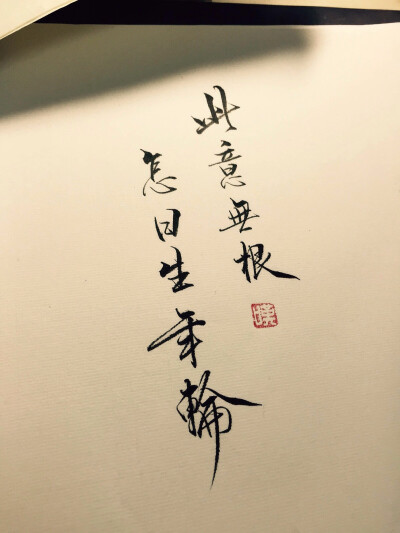 此意無根
怎日生年輪